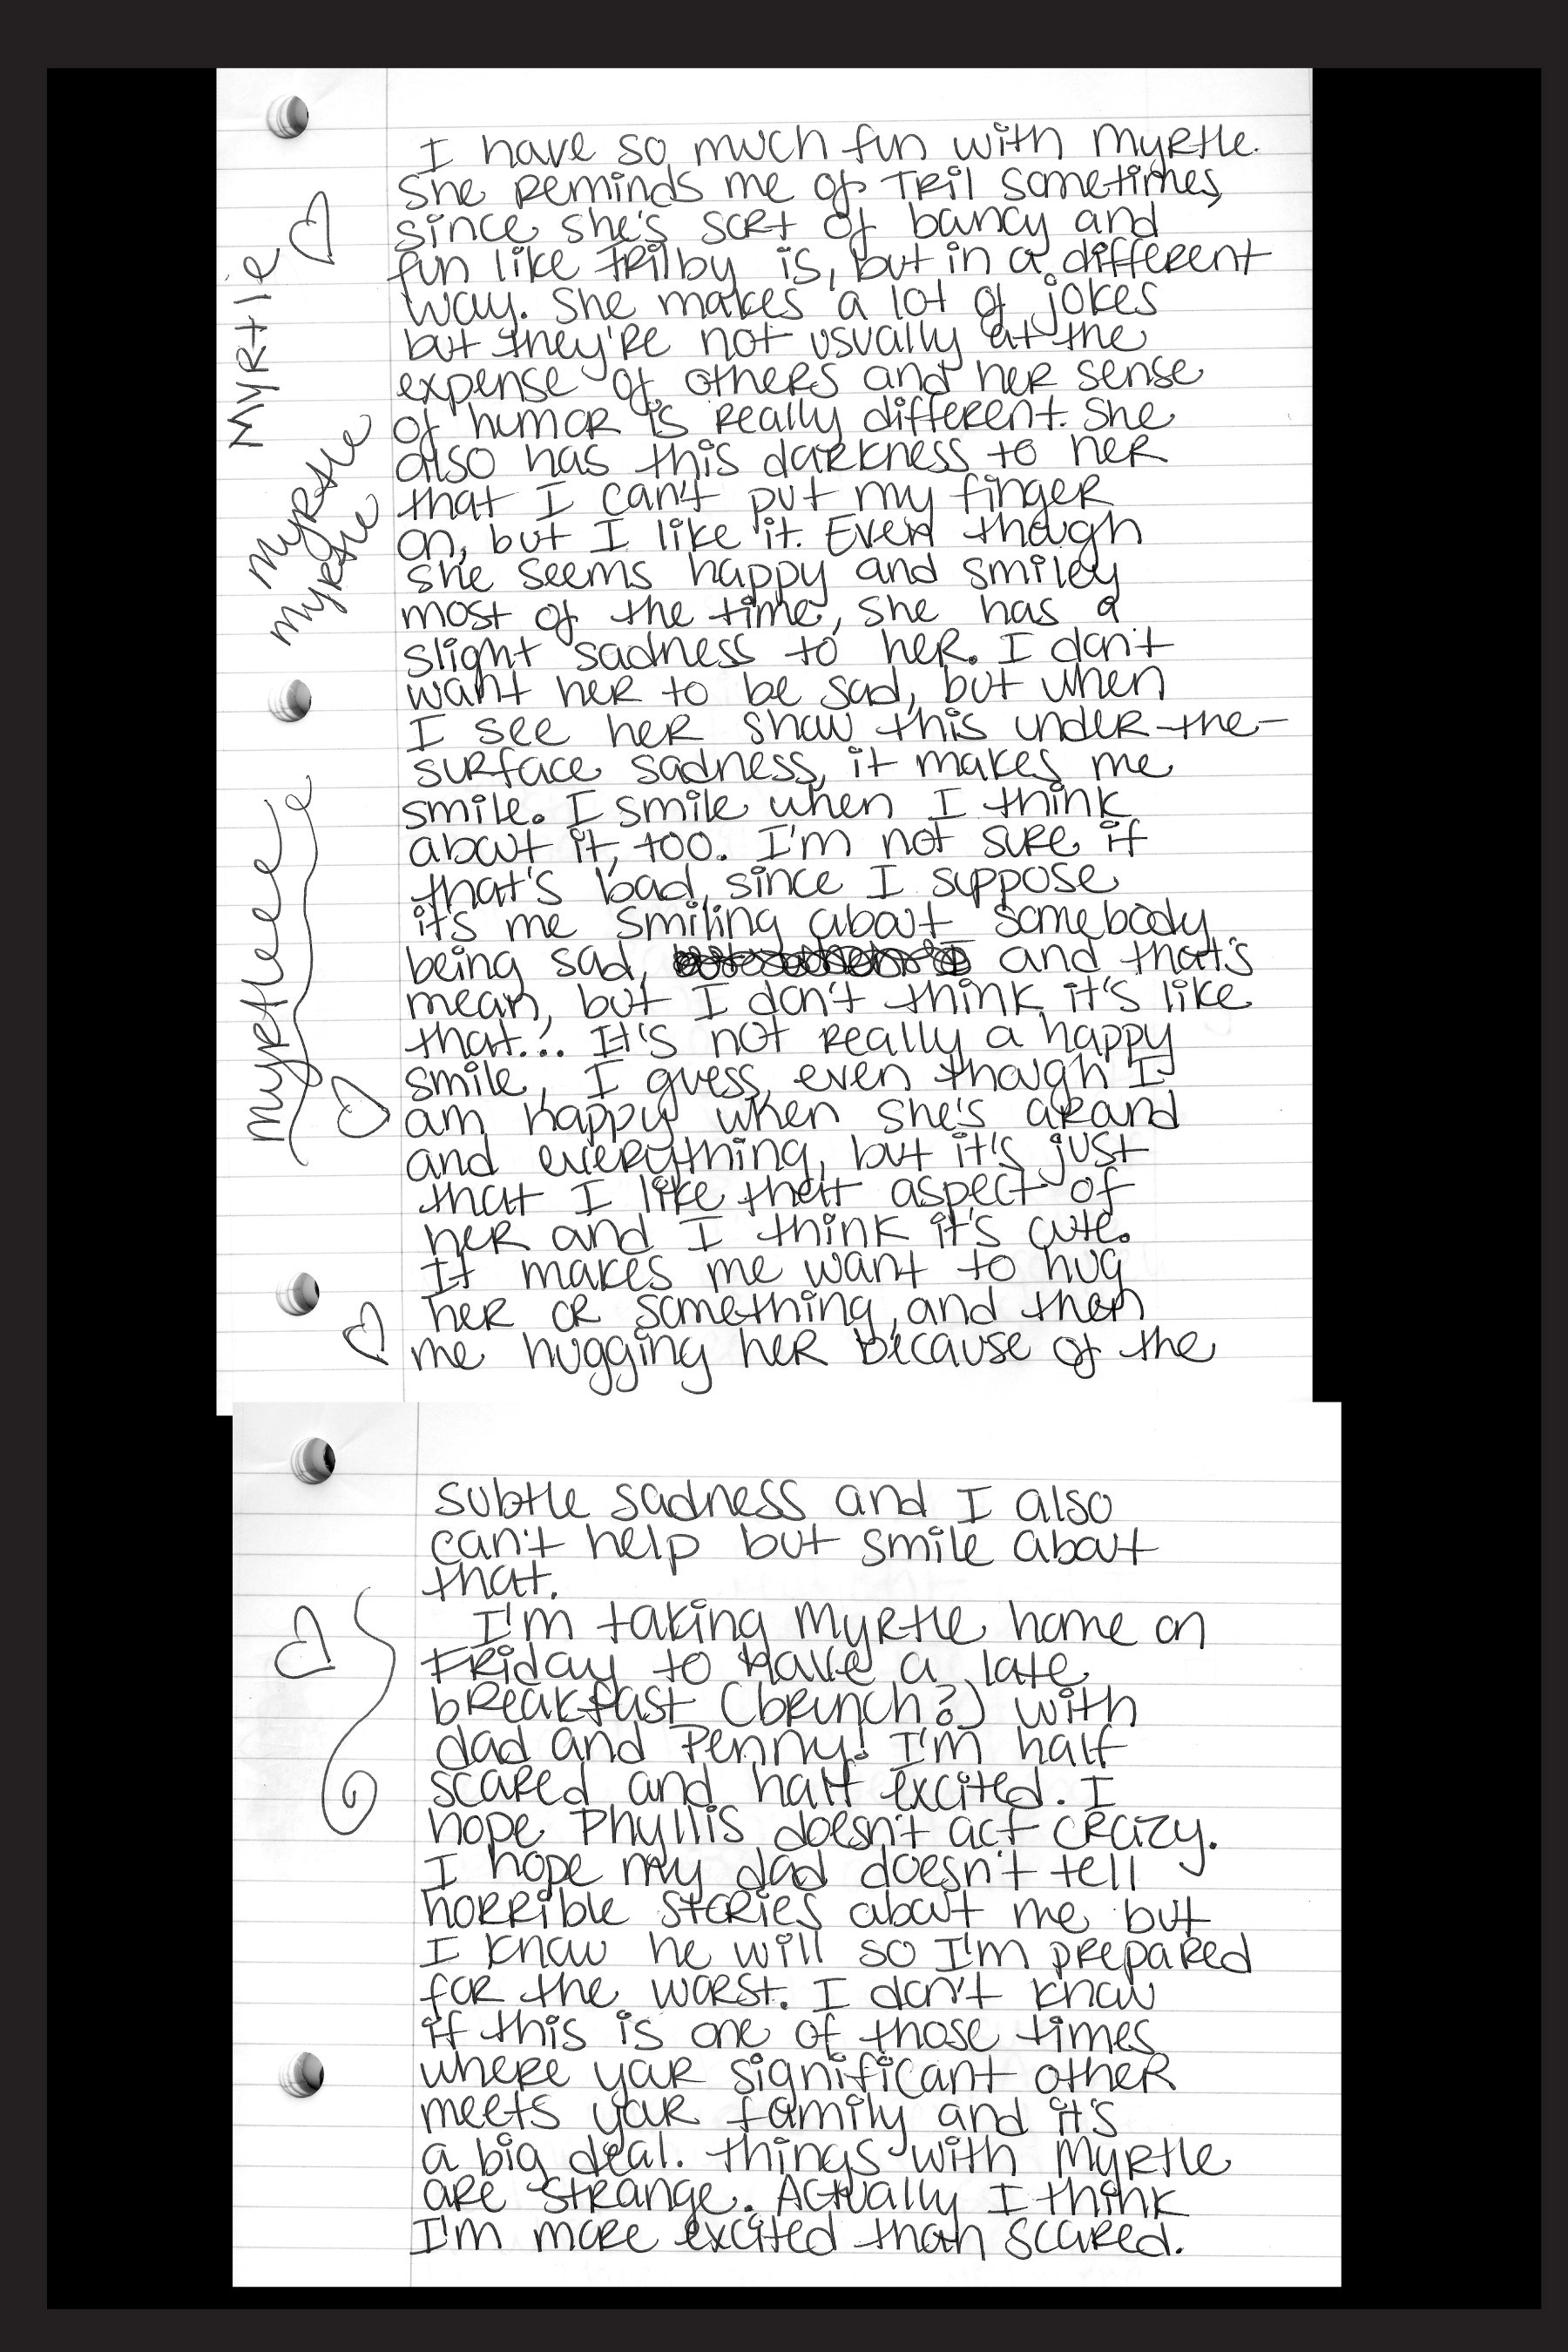 I have so much fun with Myrtle.
She reminds me of Tril sometimes,
since she's sort of bouncy and
fun like Trilby is, but in a different
way. She makes a lot of jokes
but they're not usually at the
expense of others and her sense
of humor is really different. She
also has this darkness to her
that I can't put my finger
on, but I like it. Even though
she seems happy and smiley
most of the time, she has a
slight sadness to her. I don't
want her to be sad, but when
I see her show this under-the-
surface sadness, it makes me
smile. I smile when I think
about it, too. I'm not sure if
that's bad, since I suppose
it's me smiling about somebody
being sad, and that's
mean, but I don't think it's like
that... It's not really a happy
smile, I guess, even though I
am happy when she's around
and everything, but it's just
that I like that aspect of
her and I think it's cute.
It makes me want to hug
her or something, and then
me hugging her because of the
Myrtle
Myrtle
Myrtle
Myrtleee
subtle sadness and I also
can't help but smile about
that.
I'm taking Myrtle home on
Friday to have a late
breakfast (brunch?) with
dad and Penny! I'm half
scared and half excited. I
hope Phyllis doesn't act crazy.
I hope my dad doesn't tell
horrible stories about me but
I know he will so I'm prepared
for the worst. I don't know
if this is one of those times
where your significant other
meets your family and it's
a big deal. Things with Myrtle
are strange. Actually I think
I'm more excited than scared.